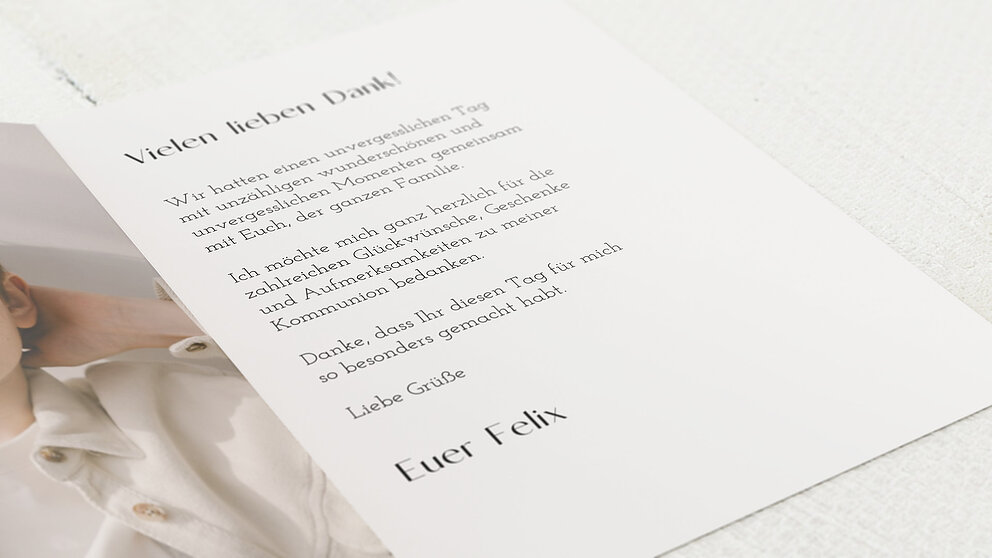 Vielen lieben Dank!
Wir hatten einen unvergesslichen Tag
mit unzähligen wunderschönen und
unvergesslichen Momenten gemeinsam
mit Euch, der ganzen Familie.
Ich möchte mich ganz herzlich für die
zahlreichen Glückwünsche, Geschenke
und Aufmerksamkeiten zu meiner
Kommunion bedanken.
Danke, dass Ihr diesen Tag für mich
so besonders gemacht habt.
Liebe Grüße
Euer Felix